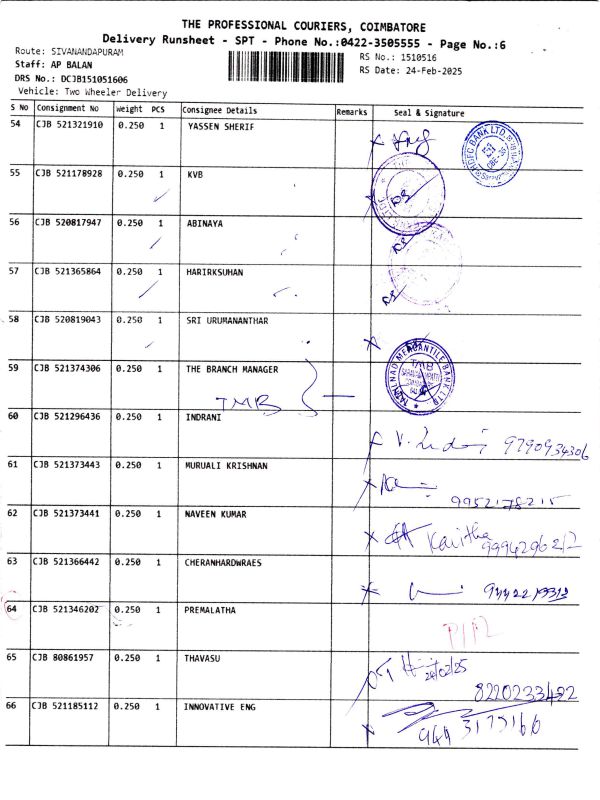 THE PROFESSIONAL COURIERS, COIMBATORE
Delivery Runsheet - SPT - Phone No.:0422-3505555 - Page No.:6
Route: SIVANANDAPURAM
RS No.: 1510516
Staff: AP BALAN
RS Date: 24-Feb-2025
DRS No.: DCJB151051606
Vehicle: Two Wheeler Delivery
S No Consignment No Weight PCS Consignee Details Remarks Seal & Signature
54 CJB 521321910 0.250 1 YASSEN SHERIF
HDFC BANK LTD
55 CJB 521178928 0.250 1 KVB
56 CJB 520817947 0.250 1 ABINAYA
57 CJB 521365864 0.250 1 HARIRKSUHAN
58 CJB 520819043 0.250 1 SRI URUMANANTHAR
59 CJB 521374306 0.250 1 THE BRANCH MANAGER
TMB
TAMILNAD MERCANTILE BANK LTD
TMB
60 CJB 521296436 0.250 1 INDRANI
9790934306
61 CJB 521373443 0.250 1 MURUALI KRISHNAN
9952178215
62 CJB 521373441 0.250 1 NAVEEN KUMAR
Kavitha
63 CJB 521366442 0.250 1 CHERANHARDWRAES
64 CJB 521346202 0.250 1 PREMALATHA
65 CJB 80861957 0.250 1 THAVASU
24/02/25
66 CJB 521185112 0.250 1 INNOVATIVE ENG